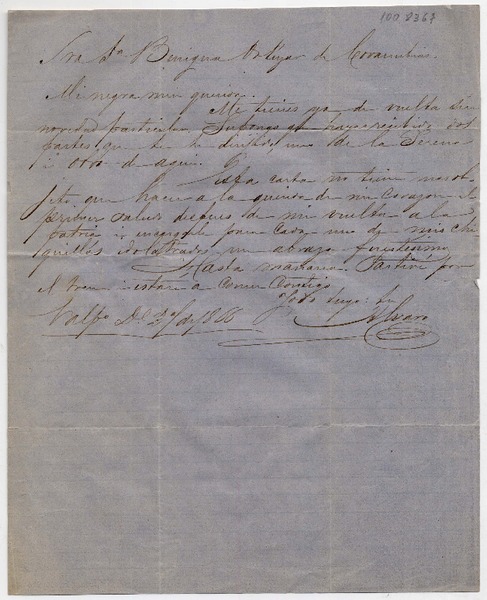 100 8367
Sra Da Benigna Ortúzar de Covarrubias.
Mi negra mui querida.
Me tienes ya de vuelta sin
novedad particular. Supongo qe hayas recibido dos
partes que te he dirijido, uno de la Serena
i otro de aquí.
Esta carta no tiene mas ob-
jeto que hacer a la querida de mi corazon el
primer saludo despues de mi vuelta a la
patria i mandarle para cada uno de mis chi-
quillos idolatrados un abrazo finísimo.
Hasta mañana. Partiré por
el tren i estaré a comer contigo.
Todo tuyo tu
Valpo De 27 de 1866
Alvaro